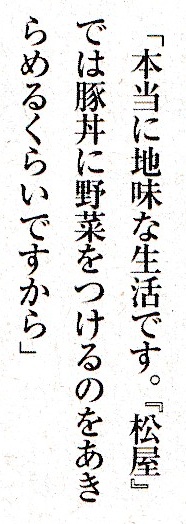 「本当に地味な生活です。『松屋』
では豚丼に野菜をつけるのをあき
らめるくらいですから」